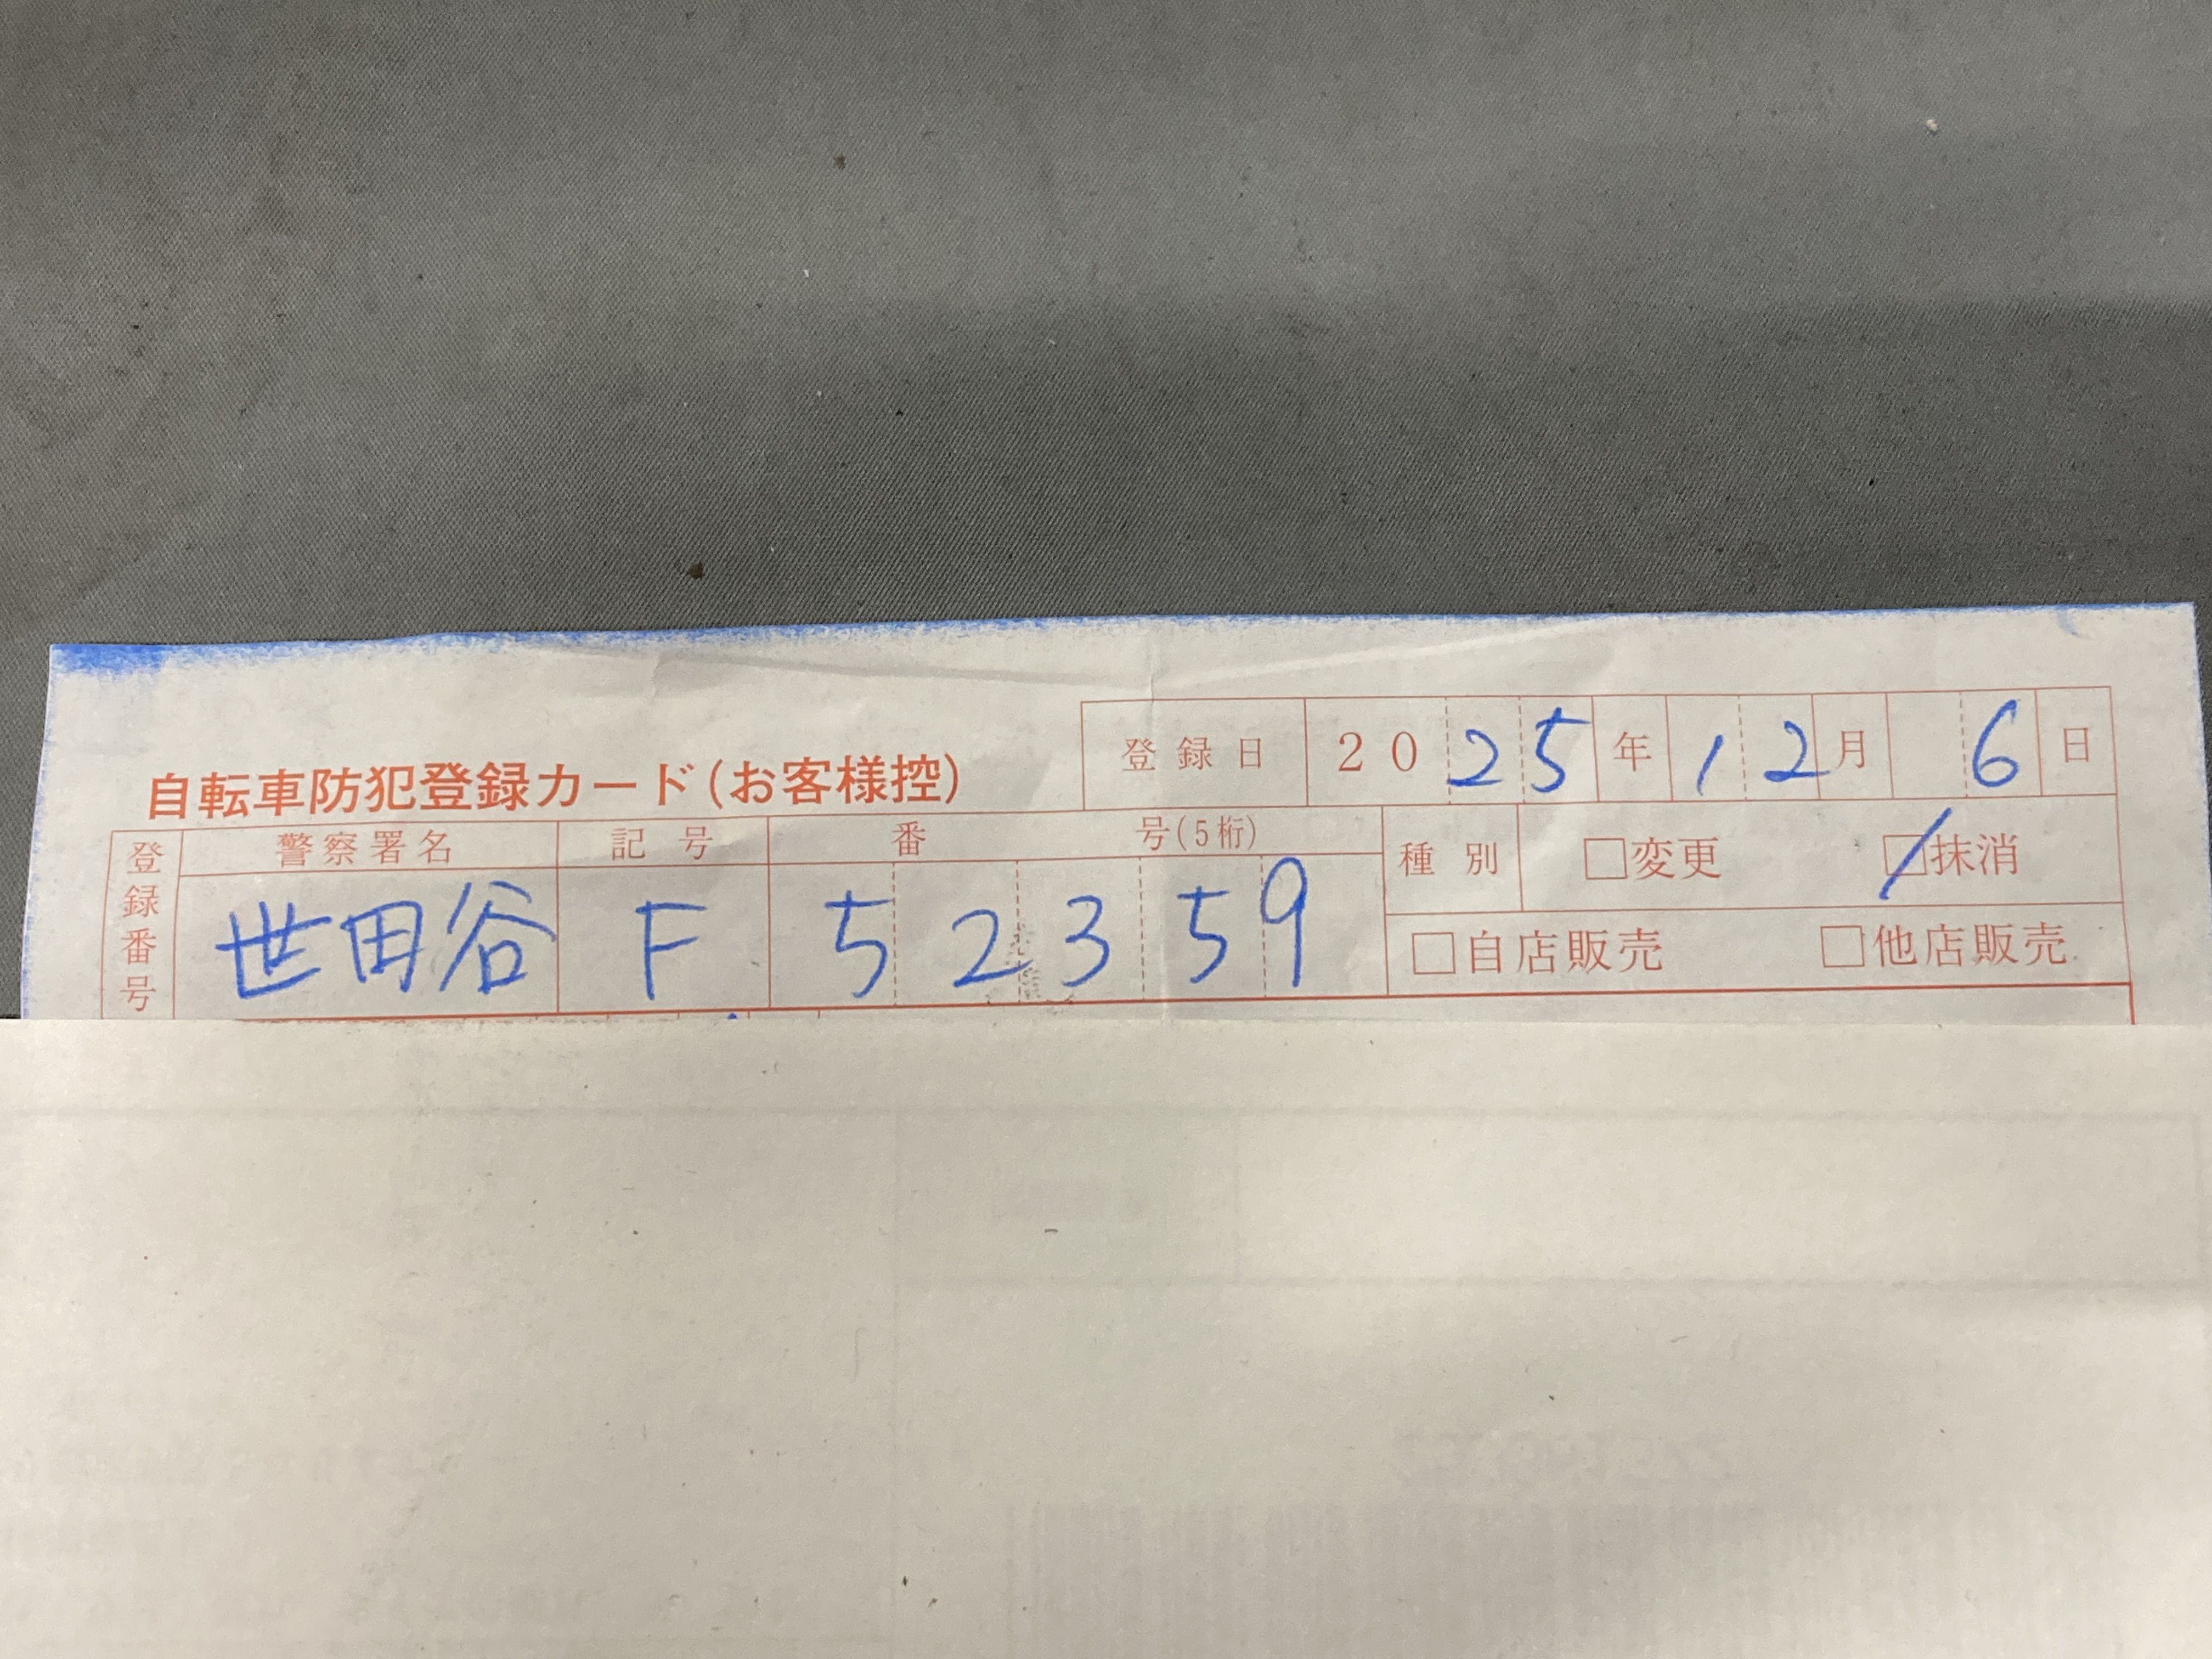 登録日 2025年12月6日
自転車防犯登録カード(お客様控)
登録番号 警察署名 記号 番号(5桁) 種別 □変更 ☑抹消
世田谷 F 52359 □自店販売 □他店販売